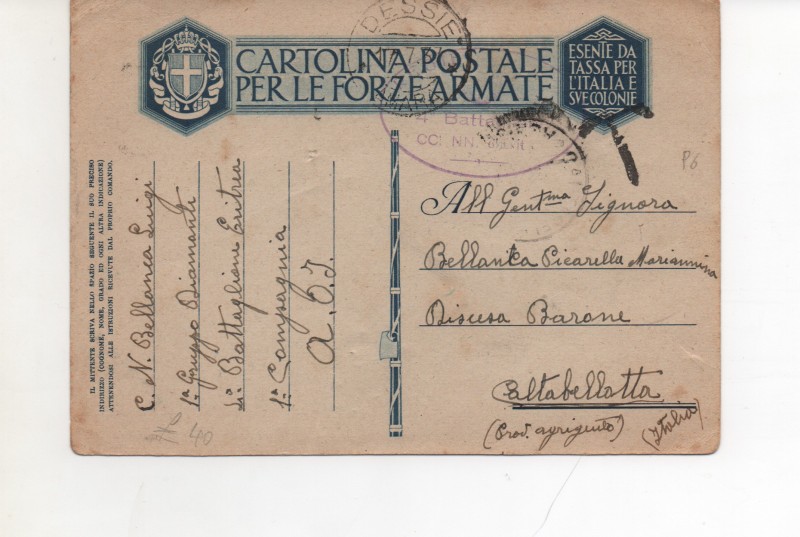 CARTOLINA POSTALE
PER LE FORZE ARMATE
ESENTE DA
TASSA PER
L'ITALIA E
SVE COLONIE
DESSIE
Batta
CC. NN.
P6
All Gent.ma Signora
Bellanca Picarella Mariannina
Discesa Barone
Caltabellotta
(Prov. Agrigento)
(Italia)
IL MITTENTE SCRIVA NELLO SPAZIO SEGUENTE IL SUO PRECISO
INDIRIZZO (COGNOME, NOME, GRADO ED OGNI ALTRA INDICAZIONE)
ATTENENDOSI ALLE ISTRUZIONI RICEVUTE DAL PROPRIO COMANDO.
C. N. Bellanca Luigi
1ª Gruppo Diamanti
4º Battaglione Eritrea
1ª Compagnia
A. O. I.
40